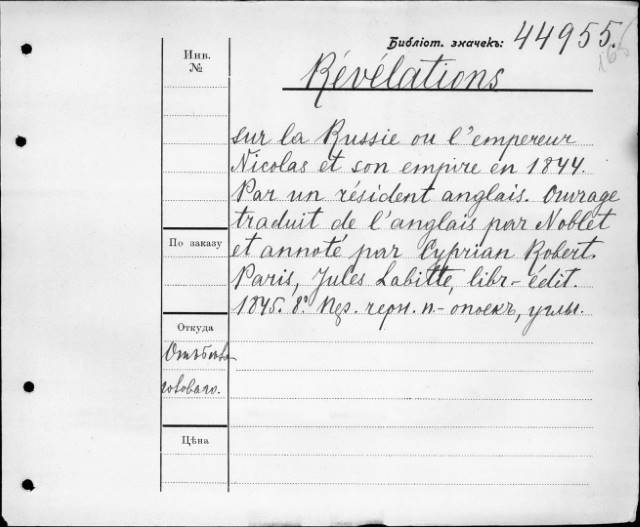 Библіот. значекъ: 44955.
165
Révélations
sur la Russie ou l'empereur
Nicolas et son empire en 1844.
Par un résident anglais. Ouvrage
traduit de l'anglais par Noblet
et annoté par Cyprian Robert.
Paris, Jules Labitte, libr.-édit.
1845. 8º. черн. п-опоекъ, углы.
Инв.
№
По заказу
Откуда
Цѣна